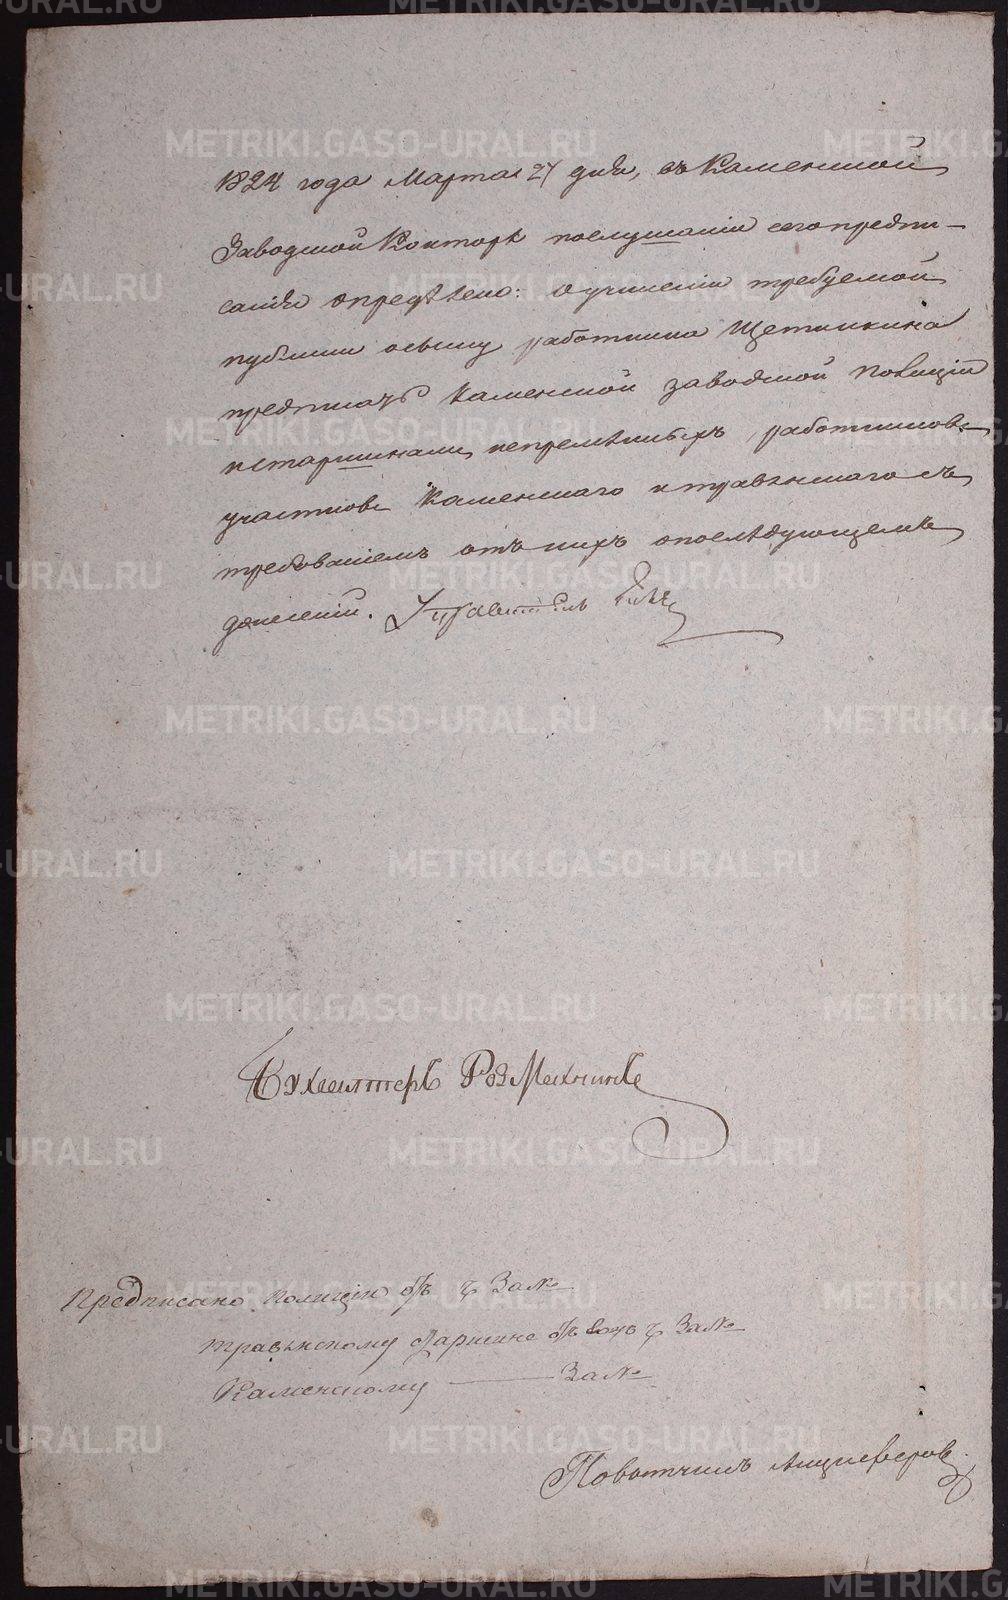 1824 года Марта 27 дня, въ Каменской
Заводской Конторѣ послушаніи сего предпи-
санія опредѣлено: о учиненіи требуемой
публики о сыску работника Щетинкина
предписать Каменской заводской полиціи
и старшинамъ непремѣнныхъ работниковъ
участковъ Каменскаго и травянскаго съ
требованіемъ отъ нихъ о послѣдующемъ
донесеніи. Управитель
Бухгалтеръ
Предписано полиціи за №
травянскому старшине за №
Каменскому — за №
Повытчикъ
METRIKI.GASO-URAL.RU